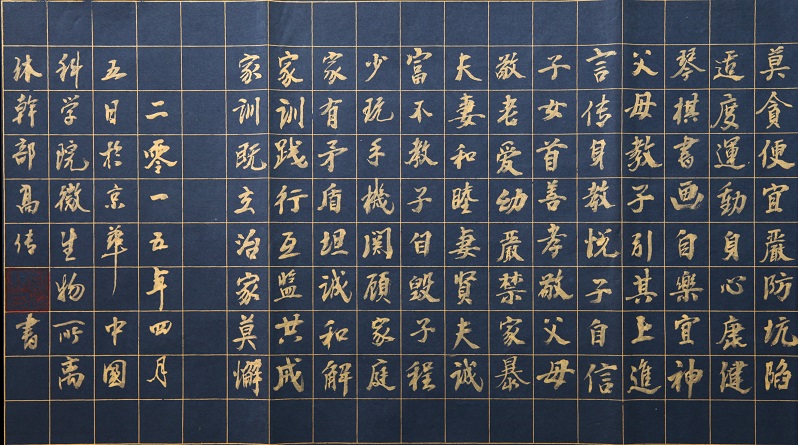 莫貪便宜嚴防坑陷
适度運動身心康健
琴棋書画自樂宜神
父母教子引其上進
言传身教悦子自信
子女首善孝敬父母
敬老爱幼嚴禁家暴
夫妻和睦妻贤夫诚
富不教子自毁子程
少玩手機関顾家庭
家有矛盾坦诚和解
家训践行互监共成
家训既立治家莫懈
二零一五年四月
五日於京華中國
科学院微生物所离
休幹部高传書